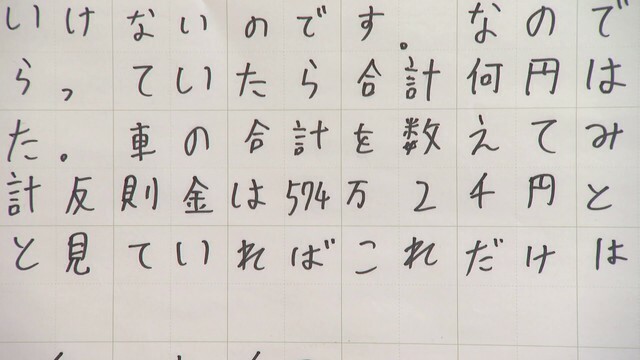 いけないのです。なので
らっていたら合計何円は
た。車の合計を数えてみ
計反則金は574万2千円と
と見ていればこれだけは